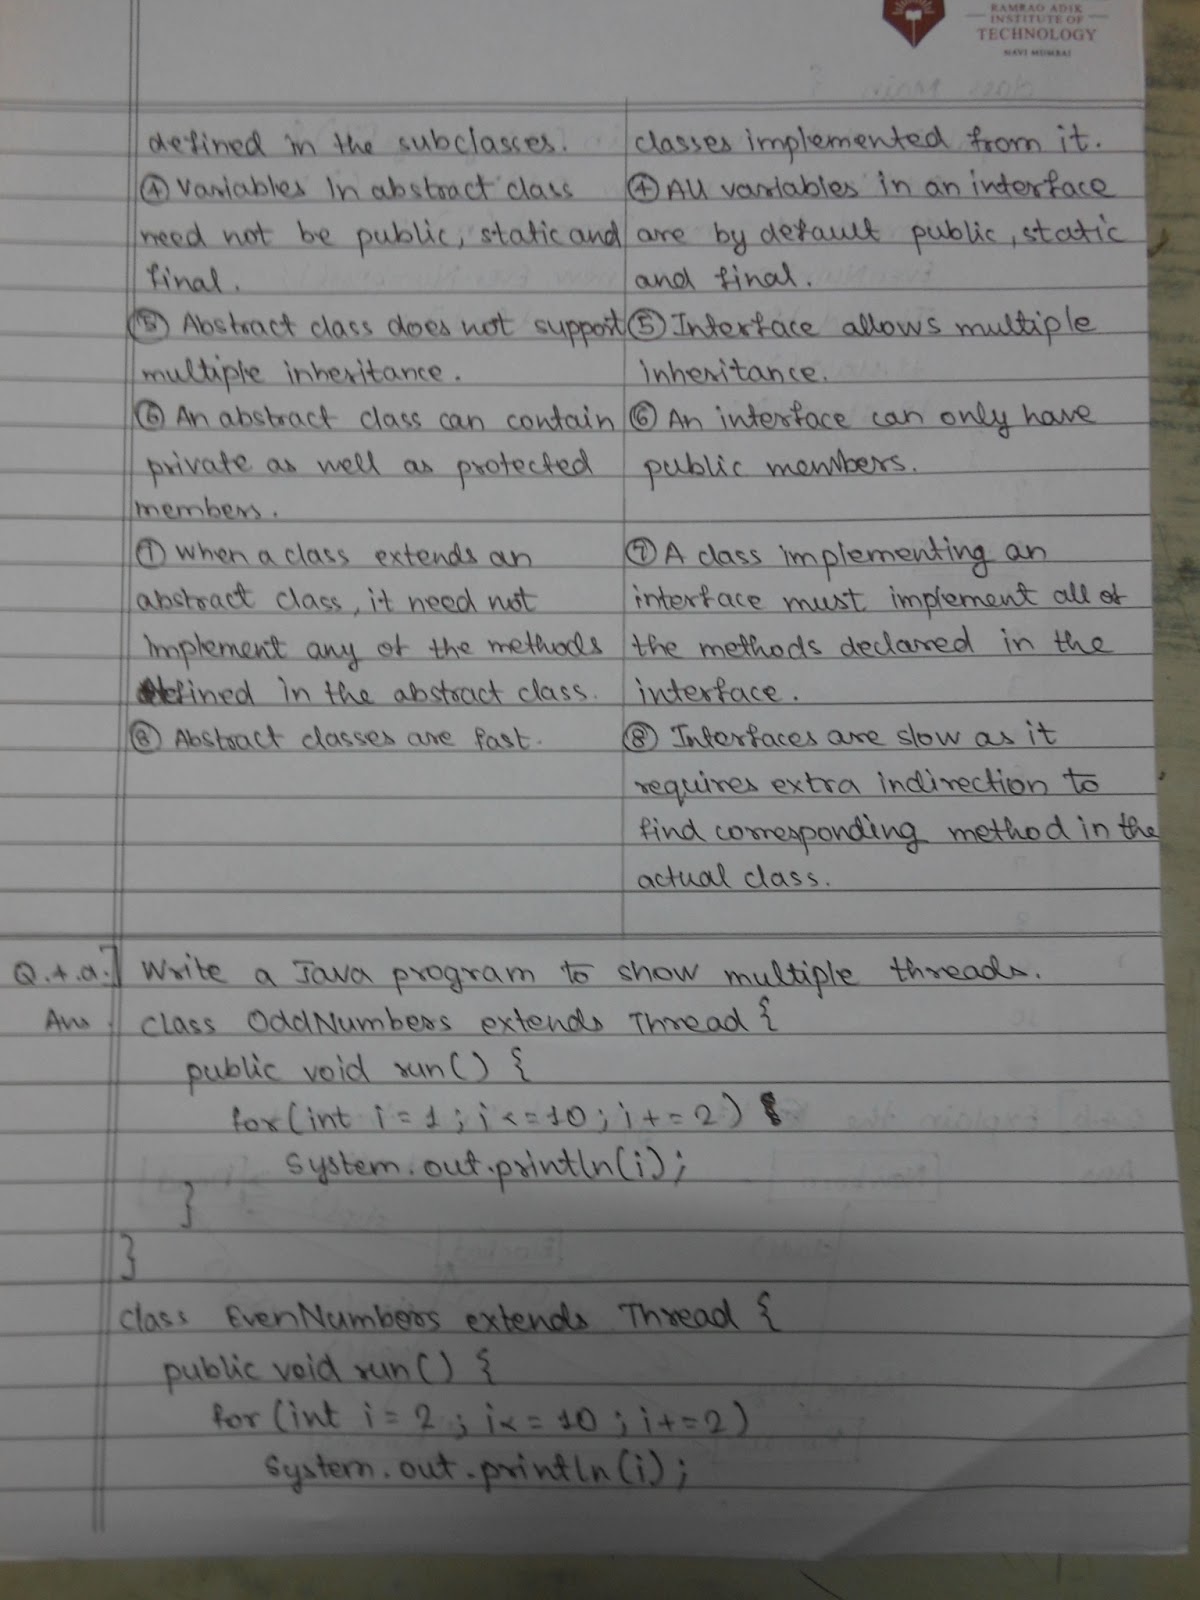 RAMRAO ADIK
INSTITUTE OF
TECHNOLOGY
NAVI MUMBAI
defined in the subclasses.
④ Variables in abstract class
need not be public, static and
final.
⑤ Abstract class does not support
multiple inheritance.
⑥ An abstract class can contain
private as well as protected
members.
⑦ When a class extends an
abstract class, it need not
implement any of the methods
defined in the abstract class.
⑧ Abstract classes are fast.
classes implemented from it.
④ All variables in an interface
are by default public, static
and final.
⑤ Interface allows multiple
inheritance.
⑥ An interface can only have
public members.
⑦ A class implementing an
interface must implement all of
the methods declared in the
interface.
⑧ Interfaces are slow as it
requires extra indirection to
find corresponding method in the
actual class.
Q.4.a.] Write a Java program to show multiple threads.
Ans. class OddNumbers extends Thread {
public void run() {
for(int i=1; i<=10; i+=2)
System.out.println(i);
}
}
class EvenNumbers extends Thread {
public void run() {
for(int i=2; i<=10; i+=2)
System.out.println(i);